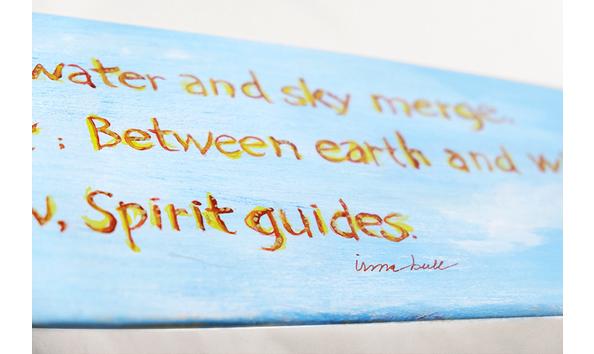 water and sky merge.
: Between earth and w
, Spirit guides.
irma bull